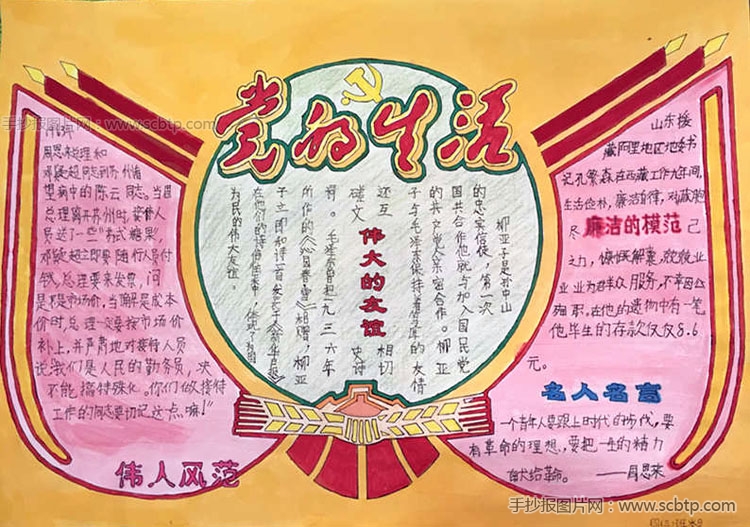 党的生活
手抄报图片网:www.scbtp.com
周恩来总理和
邓颖超同志到苏州看
望病中的陈云同志。当周
总理离开苏州时,接待人
员送了一些苏式糖果,
邓颖超立即要随行人员付
钱,总理要来发票,问
是不是市场价,当了解是成本
价时,总理一定要按市场价
补上,并严肃地对接待人员
说"我们是人民的勤务员,决
不能搞特殊化。你们做接待
工作的同志要切记这点嘛!"
伟人风范
柳亚子是孙中山
的忠实信徒,第一次
国共合作他就与加入国民党
的共产党人亲密合作。柳亚
子与毛泽东保持着厚的友情
还互相切
磋文史诗
伟大的友谊
词。毛泽东曾把一九三六年
所作的《沁园春·雪》相赠,柳亚
子立即和诗一首
在他们的诗词往来中,体现了相同
为民的伟大友谊。
山东援
藏阿里地区地委书
记孔繁森在西藏工作九年间,
生活俭朴,廉洁自律,对藏胞
尽
廉洁的模范
己
之力,慷慨解囊,兢兢业
业为群众服务,不幸因公
殉职,在他的遗物中有一笔
他毕生的存款仅仅8.6
元。
名人名言
一个青年人要跟上时代的步伐,要
有革命的理想,要把一生的精力
献给革命。——周恩来
手抄报图片网:www.scbtp.com